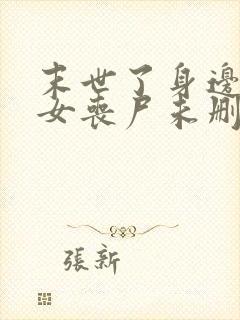 末世了身邊
女喪尸未刪
張新